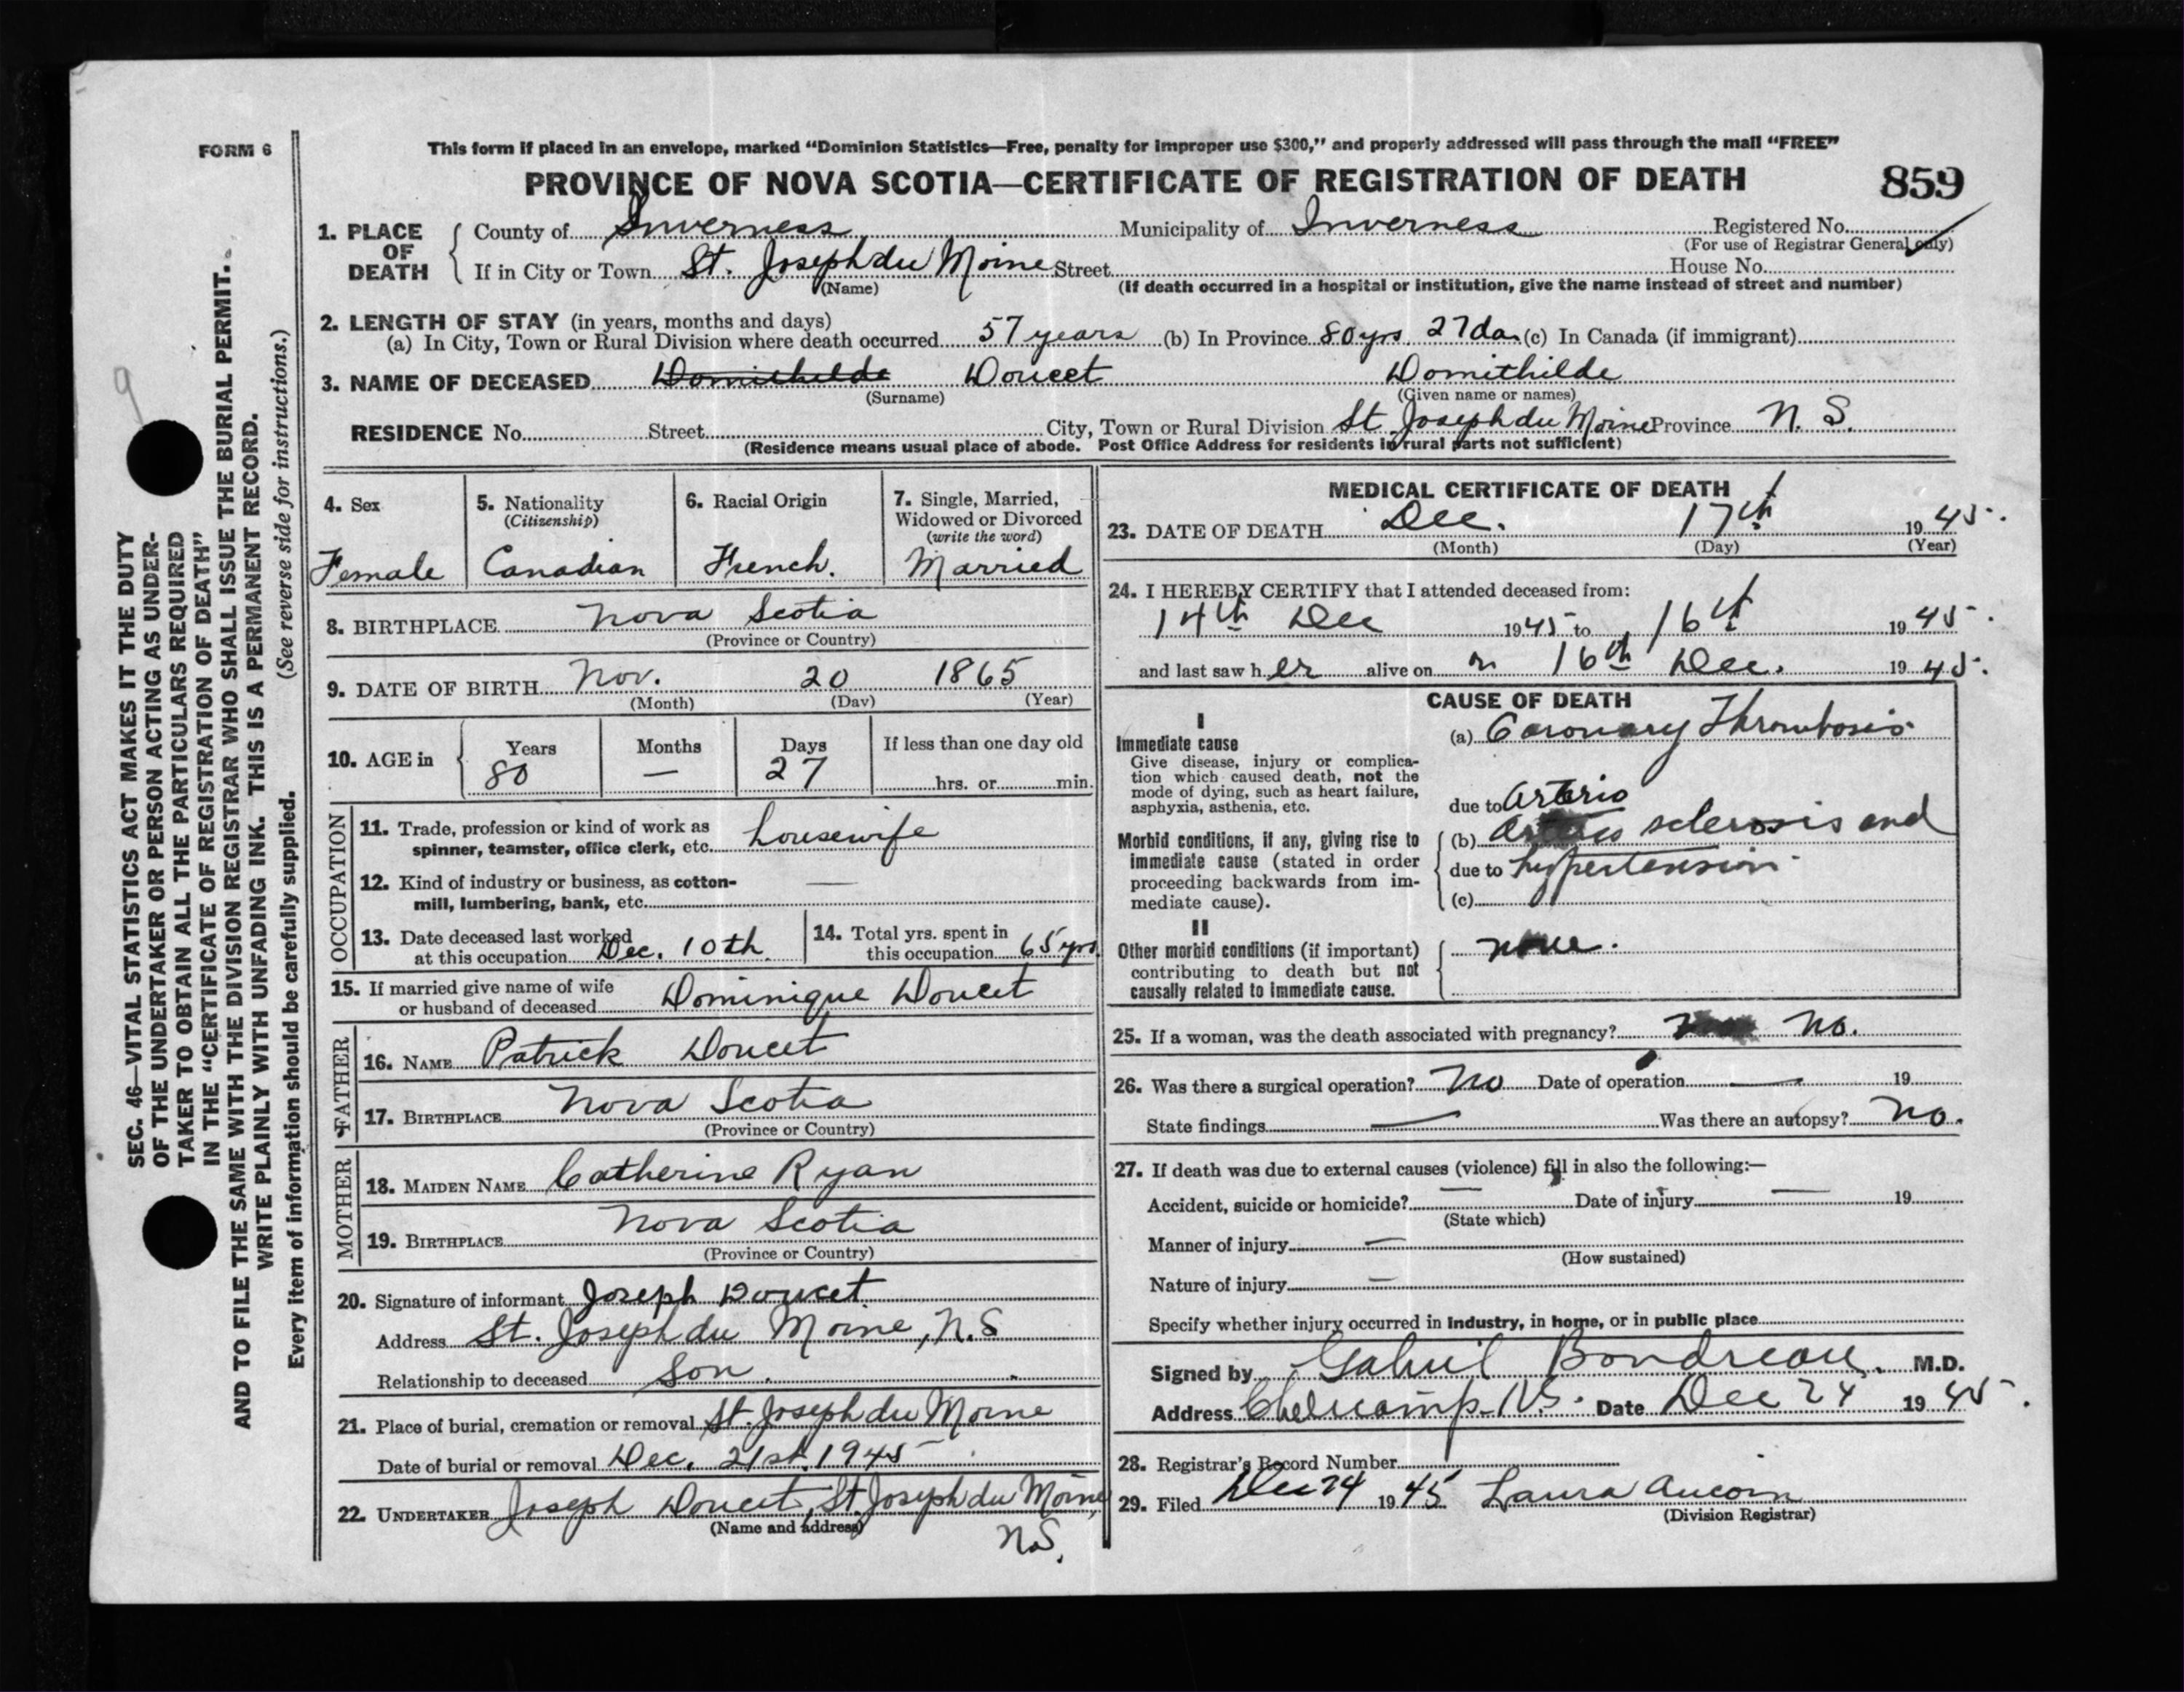 FORM 6
This form if placed in an envelope, marked “Dominion Statistics—Free, penalty for improper use $300,” and properly addressed will pass through the mail “FREE”
PROVINCE OF NOVA SCOTIA—CERTIFICATE OF REGISTRATION OF DEATH 859
1. PLACE OF DEATH
County of Inverness Municipality of Inverness Registered No.
(For use of Registrar General only)
If in City or Town St. Joseph du Moine Street House No.
(Name) (If death occurred in a hospital or institution, give the name instead of street and number)
2. LENGTH OF STAY (in years, months and days)
(a) In City, Town or Rural Division where death occurred 57 years (b) In Province 80 yrs. 27 da. (c) In Canada (if immigrant)
3. NAME OF DECEASED Domithilde Doucet Domithilde
(Surname) (Given name or names)
RESIDENCE No. Street City, Town or Rural Division St Joseph du Moine Province N. S.
(Residence means usual place of abode. Post Office Address for residents in rural parts not sufficient)
4. Sex
Female
5. Nationality
(Citizenship)
Canadian
6. Racial Origin
French.
7. Single, Married,
Widowed or Divorced
(write the word)
Married
8. BIRTHPLACE Nova Scotia
(Province or Country)
9. DATE OF BIRTH Nov. 20 1865
(Month) (Day) (Year)
10. AGE in
Years Months Days If less than one day old
80 — 27 hrs. or min.
OCCUPATION
11. Trade, profession or kind of work as
spinner, teamster, office clerk, etc. housewife
12. Kind of industry or business, as cotton-
mill, lumbering, bank, etc. —
13. Date deceased last worked
at this occupation Dec. 10th.
14. Total yrs. spent in
this occupation 65 yrs.
15. If married give name of wife
or husband of deceased Dominique Doucet
FATHER
16. NAME Patrick Doucet
17. BIRTHPLACE Nova Scotia
(Province or Country)
MOTHER
18. MAIDEN NAME Catherine Ryan
19. BIRTHPLACE Nova Scotia
(Province or Country)
20. Signature of informant Joseph Doucet
Address St. Joseph du Moine, N.S
Relationship to deceased son.
21. Place of burial, cremation or removal St. Joseph du Moine
Date of burial or removal Dec. 21st. 1945
22. UNDERTAKER Joseph Doucet, St. Joseph du Moine,
(Name and address)
N.S.
MEDICAL CERTIFICATE OF DEATH
23. DATE OF DEATH Dec. 17th 1945.
(Month) (Day) (Year)
24. I HEREBY CERTIFY that I attended deceased from:
14th Dec 1945 to 16th 1945.
and last saw her alive on 16th Dec. 1945.
CAUSE OF DEATH
I
Immediate cause
Give disease, injury or complica-
tion which caused death, not the
mode of dying, such as heart failure,
asphyxia, asthenia, etc.
(a) Coronary Thrombosis
due to Arterio
Morbid conditions, if any, giving rise to
immediate cause (stated in order
proceeding backwards from im-
mediate cause).
(b) sclerosis and
due to hypertension
(c)
II
Other morbid conditions (if important)
contributing to death but not
causally related to immediate cause.
none.
25. If a woman, was the death associated with pregnancy? No.
26. Was there a surgical operation? No Date of operation — 19
State findings — Was there an autopsy? No.
27. If death was due to external causes (violence) fill in also the following:—
Accident, suicide or homicide? — Date of injury — 19
(State which)
Manner of injury —
(How sustained)
Nature of injury —
Specify whether injury occurred in industry, in home, or in public place
Signed by Gabriel Boudreau. M.D.
Address Cheticamp N.S. Date Dec 24 1945.
28. Registrar's Record Number
29. Filed Dec 24 1945 Laura Aucoin
(Division Registrar)
SEC. 46—VITAL STATISTICS ACT MAKES IT THE DUTY
OF THE UNDERTAKER OR PERSON ACTING AS UNDER-
TAKER TO OBTAIN ALL THE PARTICULARS REQUIRED
IN THE “CERTIFICATE OF REGISTRATION OF DEATH”
AND TO FILE THE SAME WITH THE DIVISION REGISTRAR WHO SHALL ISSUE THE BURIAL PERMIT.
WRITE PLAINLY WITH UNFADING INK. THIS IS A PERMANENT RECORD.
Every item of information should be carefully supplied. (See reverse side for instructions.)
9